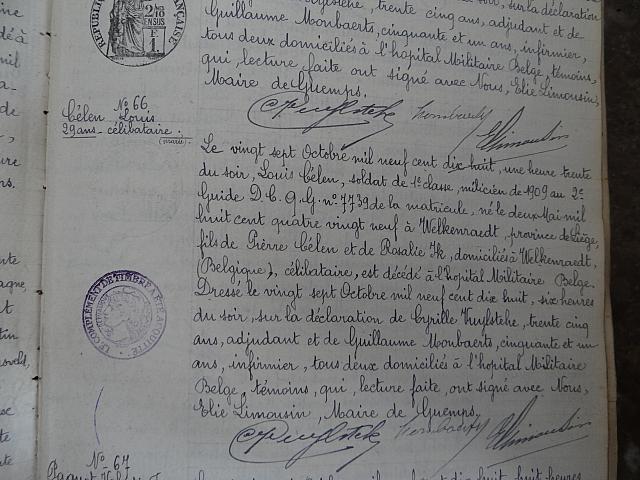 RÉPUBLIQUE FRANÇAISE
2/10
EN SUS
1F
soir, sur la déclaration
trente cinq ans, adjudant et de
Guillaume Moonbaerts, cinquante et un ans, infirmier,
tous deux domiciliés à l'hôpital Militaire Belge, témoins,
qui, lecture faite ont signé avec Nous, Elie Limousin,
Maire de Guemps.
No 66
Célen Louis
29 ans - célibataire.
(marié)
Le vingt sept Octobre mil neuf cent dix huit, une heure trente
du soir, Louis Célen, soldat de 1e classe, milicien de 1909 au 2e
Guide D.C.A.G. no 7739 de la matricule, né le deux Mai mil
huit cent quatre vingt neuf à Welkenraedt, province de Liège,
fils de Pierre Célen et de Rosalie Ik, domiciliés à Welkenraedt,
(Belgique), célibataire, est décédé à l'hopital Militaire Belge.
Dressé le vingt sept Octobre mil neuf cent dix huit, six heures
du soir, sur la déclaration de Cyrille Vuylsteke, trente cinq
ans, adjudant et de Guillaume Moonbaerts, cinquante et un
ans, infirmier, tous deux domiciliés à l'hopital Militaire
Belge, témoins, qui, lecture faite, ont signé avec Nous,
Elie Limousin, Maire de Guemps.
CVuylsteke
ELimousin
LE COMPLÉMENT DE TIMBRE
No 67